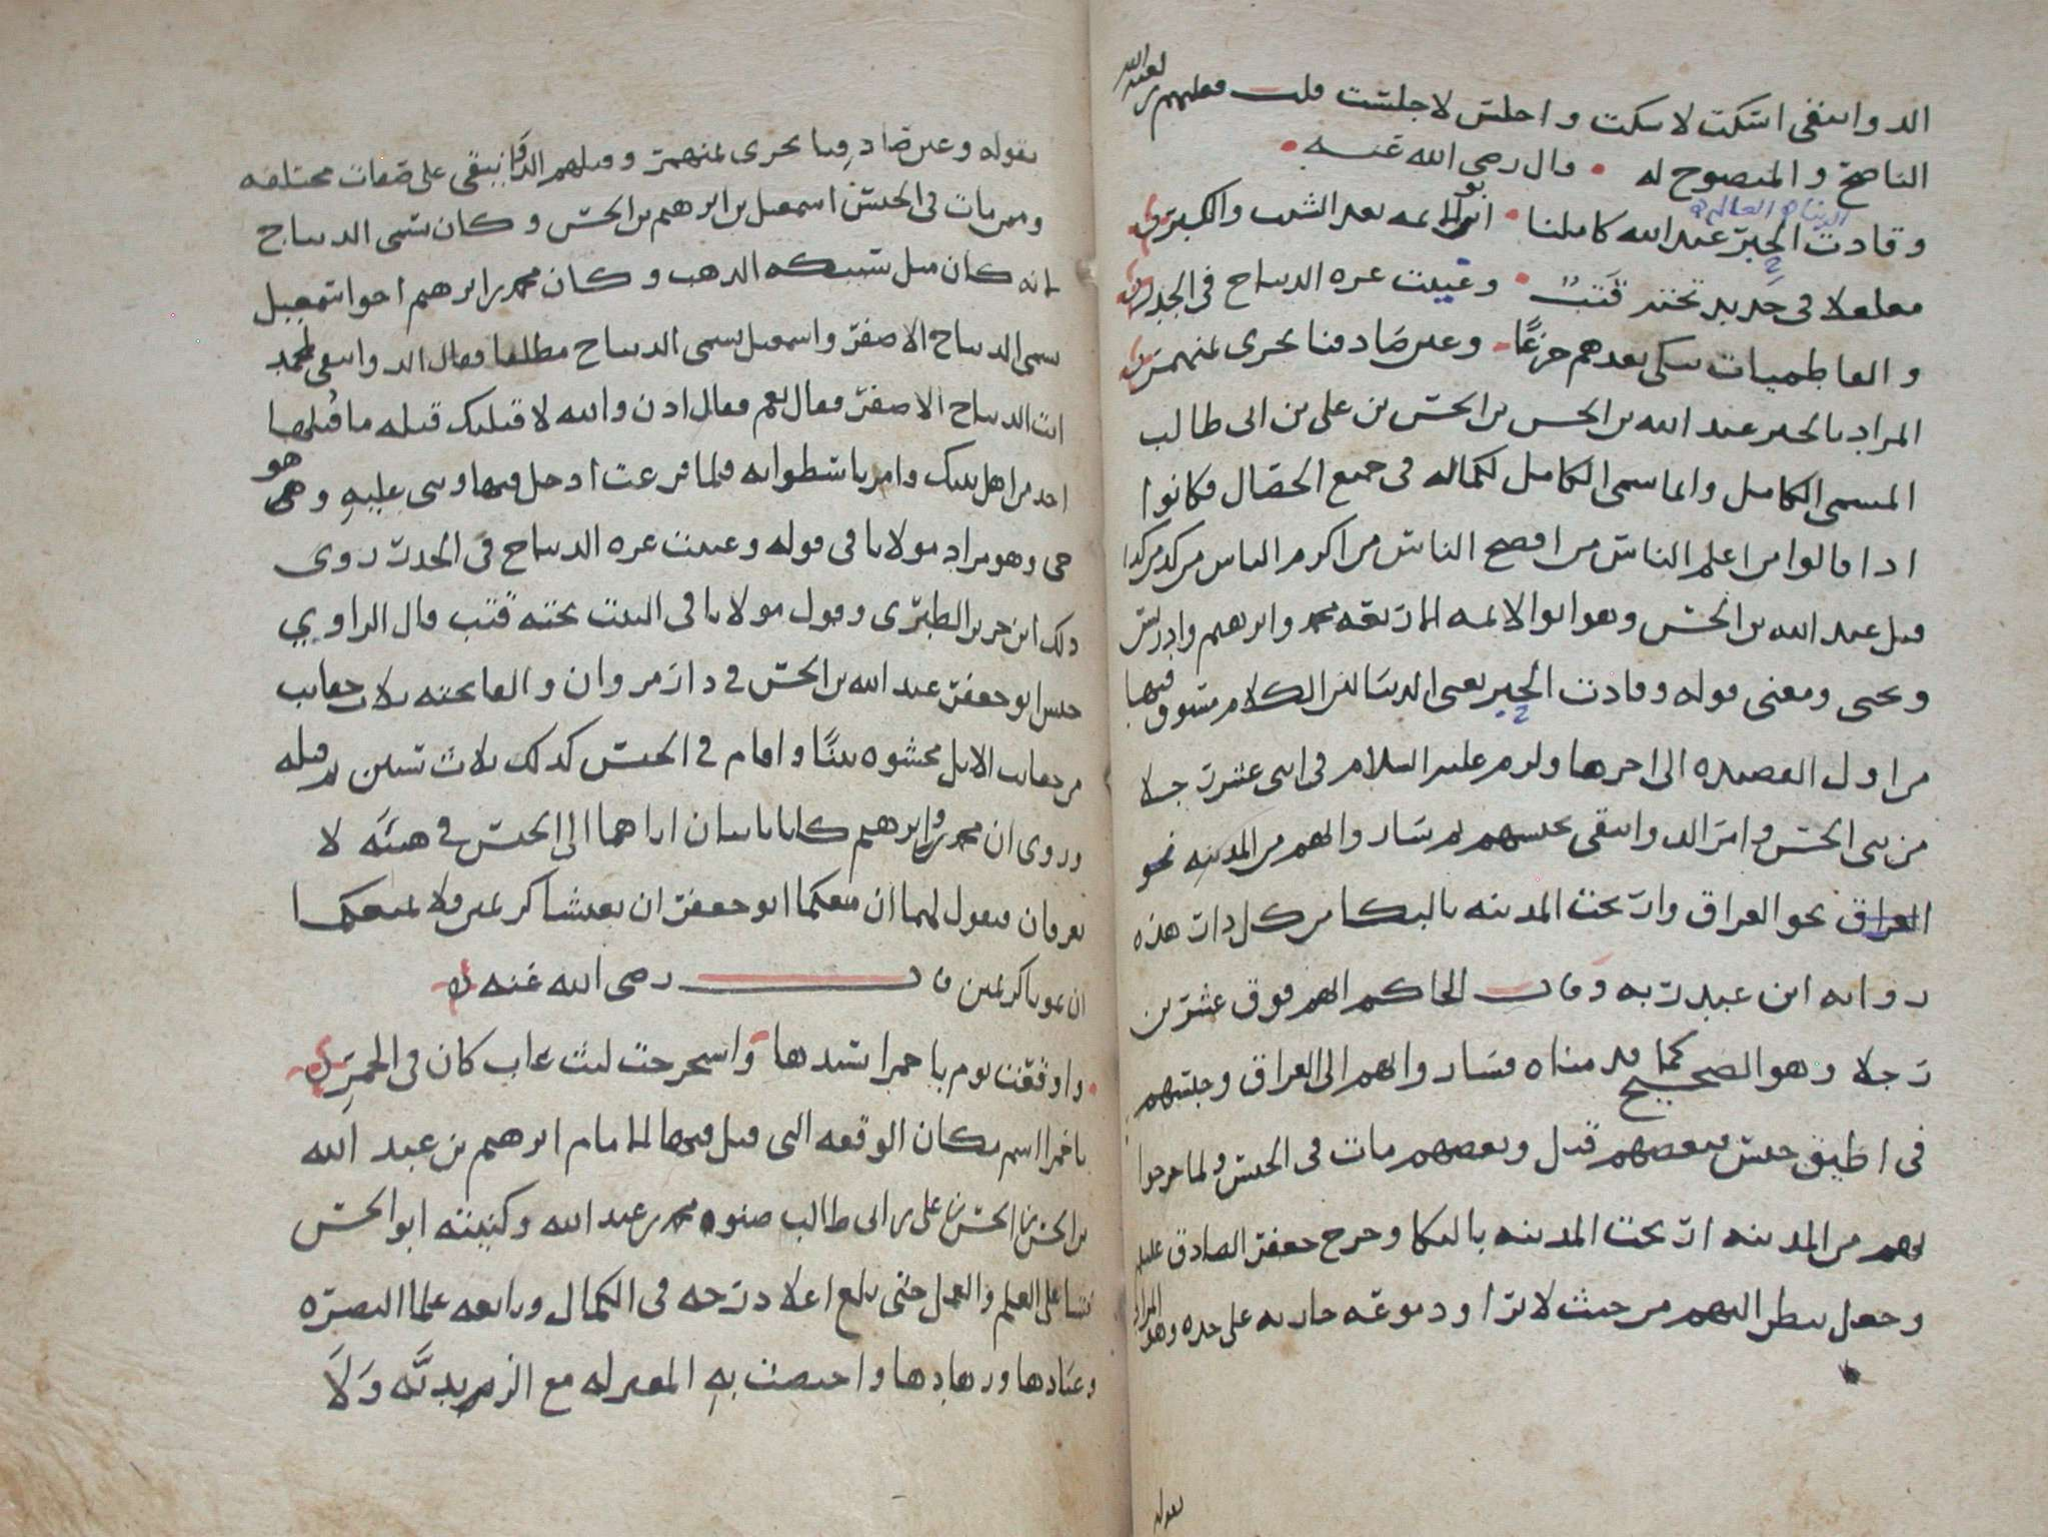 الدوانيقي اسكت لا سكت واجلس لا جلست قلت فعليهم لعنة الله
الناصح والمنصوح له • قال رضي الله عنه •
وقادت الحبر عبد الله كاملنا • ابو الائمه بعد الشيب والكبر
مغلغلا في حديد تحته قتب • وغيبت غره الديباج في الجدر
والفاطميات تبكي بعدهم جزعا • وعين صادقنا تجري بمنهمر
المراد بالحبر عبد الله بن الحسن بن الحسن بن علي بن ابي طالب
المسمى الكامل وانما سمي الكامل لكماله في جميع الخصال فكانوا
اذا قالوا من اعلم الناس من افصح الناس من اكرم الناس من كذا من كذا
قيل عبد الله بن الحسن وهو ابو الائمه الاربعه محمد وابرهيم وادريس
ويحيى ومعنى قوله وقادت الحبر يعني الدنيا لان الكلام مسوق فيها
من اول القصيده الى اخرها ولزم عليه السلام في اثني عشر رجلا
من بني الحسن وامر الدوانيقي بحبسهم ثم سار وا بهم من المدينه نحو
العراق نحو العراق وارتجت المدينه بالبكا من كل دار هذه
روايه ابن عبد ربه وقال الحاكم انهم فوق عشرين
رجلا وهو الصحيح كما قدمناه فساروا بهم الى العراق وحبسهم
في اضيق حبس فبعضهم قتل وبعضهم مات في الحبس ولما خرجوا
بهم من المدينه ارتجت المدينه بالبكا وخرج جعفر الصادق عليه
وجعل ينظر اليهم من حيث لا يرا ودموعه جاريه على خده وهو المراد
بقوله
بقوله وعين صادقنا تجري بمنهمر وقتلهم الدوانيقي على صفات مختلفه
وممن مات في الحبس اسمعيل بن ابرهيم بن الحسن وكان يسمى الديباج
لانه كان مثل سبيكه الذهب وكان محمد بن ابرهيم اخو اسمعيل
يسمى الديباج الاصفر واسمعيل يسمى الديباج مطلقا فقال الدوانيقي لمحمد
انت الديباج الاصفر فقال نعم فقال اذن والله لاقتلنك قتله ما قتلها
احد من اهل بيتك وامر باسطوانه فلما فرغت ادخل فيها وبني عليه وهو
حي وهو مراد مولانا في قوله وغيبت غره الديباج في الجدر روى
ذلك ابن جرير الطبري وقول مولانا في البيت تحته قتب قال الراوي
حبس ابو جعفر عبد الله بن الحسن في دار مروان والقا تحته ثلاث حقايب
من حقايب الابل محشوه تبنا واقام في الحبس كذلك ثلاث سنين ثم قتله
وروي ان محمدا وابرهيم كانا ياتيان اباهما الى الحبس في هيئه لا
يعرفان فيقول لهما ان منعكما ابو جعفر ان تعيشا كريمين فلا يمنعكما
ان تموتا كريمين قال رضي الله عنه
• واوقفت يوم باخمرا بسيدها واستخرجت ليث غاب كان في الخمر
باخمرا اسم مكان الوقعه التي قتل فيها الامام ابرهيم بن عبد الله
بن الحسن بن الحسن بن علي بن ابي طالب صنو محمد بن عبد الله وكنيته ابو الحسن
نشا على العلم والعمل حتى بلغ اعلا درجه في الكمال وبايعه علما البصره
وعبادها وزهادها واختصت به المعتزله مع الزيديه ولا